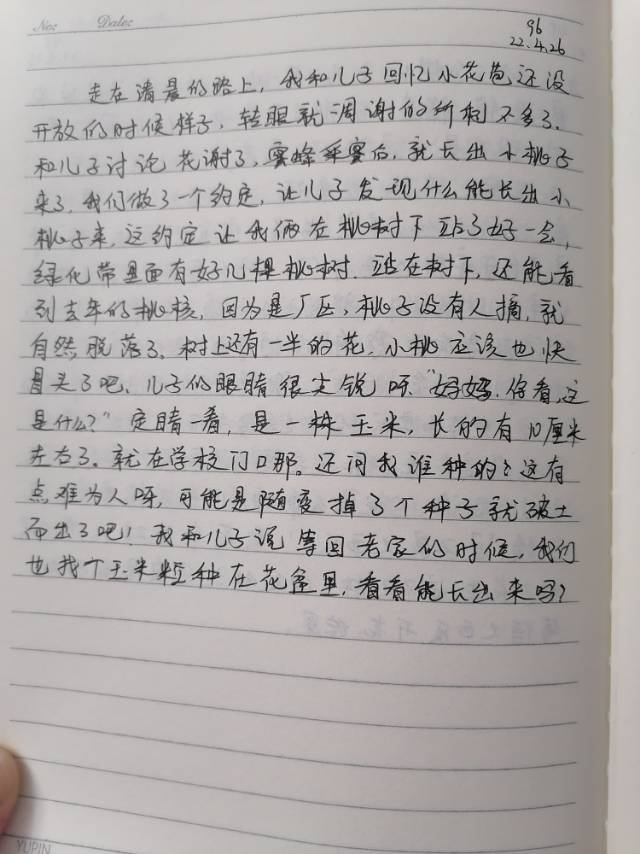 No:
Date:
96
22.4.26
走在清晨的路上,我和儿子回忆小花苞还没
开放的时候样子,转眼就凋谢的所剩不多了.
和儿子讨论花谢了,蜜蜂采蜜后,就长出小桃子
来了.我们做了一个约定,让儿子发现什么能长出小
桃子来,这约定让我俩在桃树下站了好一会,
绿化带里面有好几棵桃树.站在树下,还能看
到去年的桃核,因为是厂区,桃子没有人摘,就
自然脱落了.树上还有一半的花.小桃应该也快
冒头了吧.儿子的眼睛很尖锐呀."妈妈.你看,这
是什么?"定睛一看,是一株玉米,长的有10厘米
左右了。就在学校门口那。还问我谁种的?这有
点难为人呀,可能是随变掉了个种子就破土
而出了吧!我和儿子说等回老家的时候,我们
也找个玉米粒种在花盆里,看看能长出来吗?
YUPIN